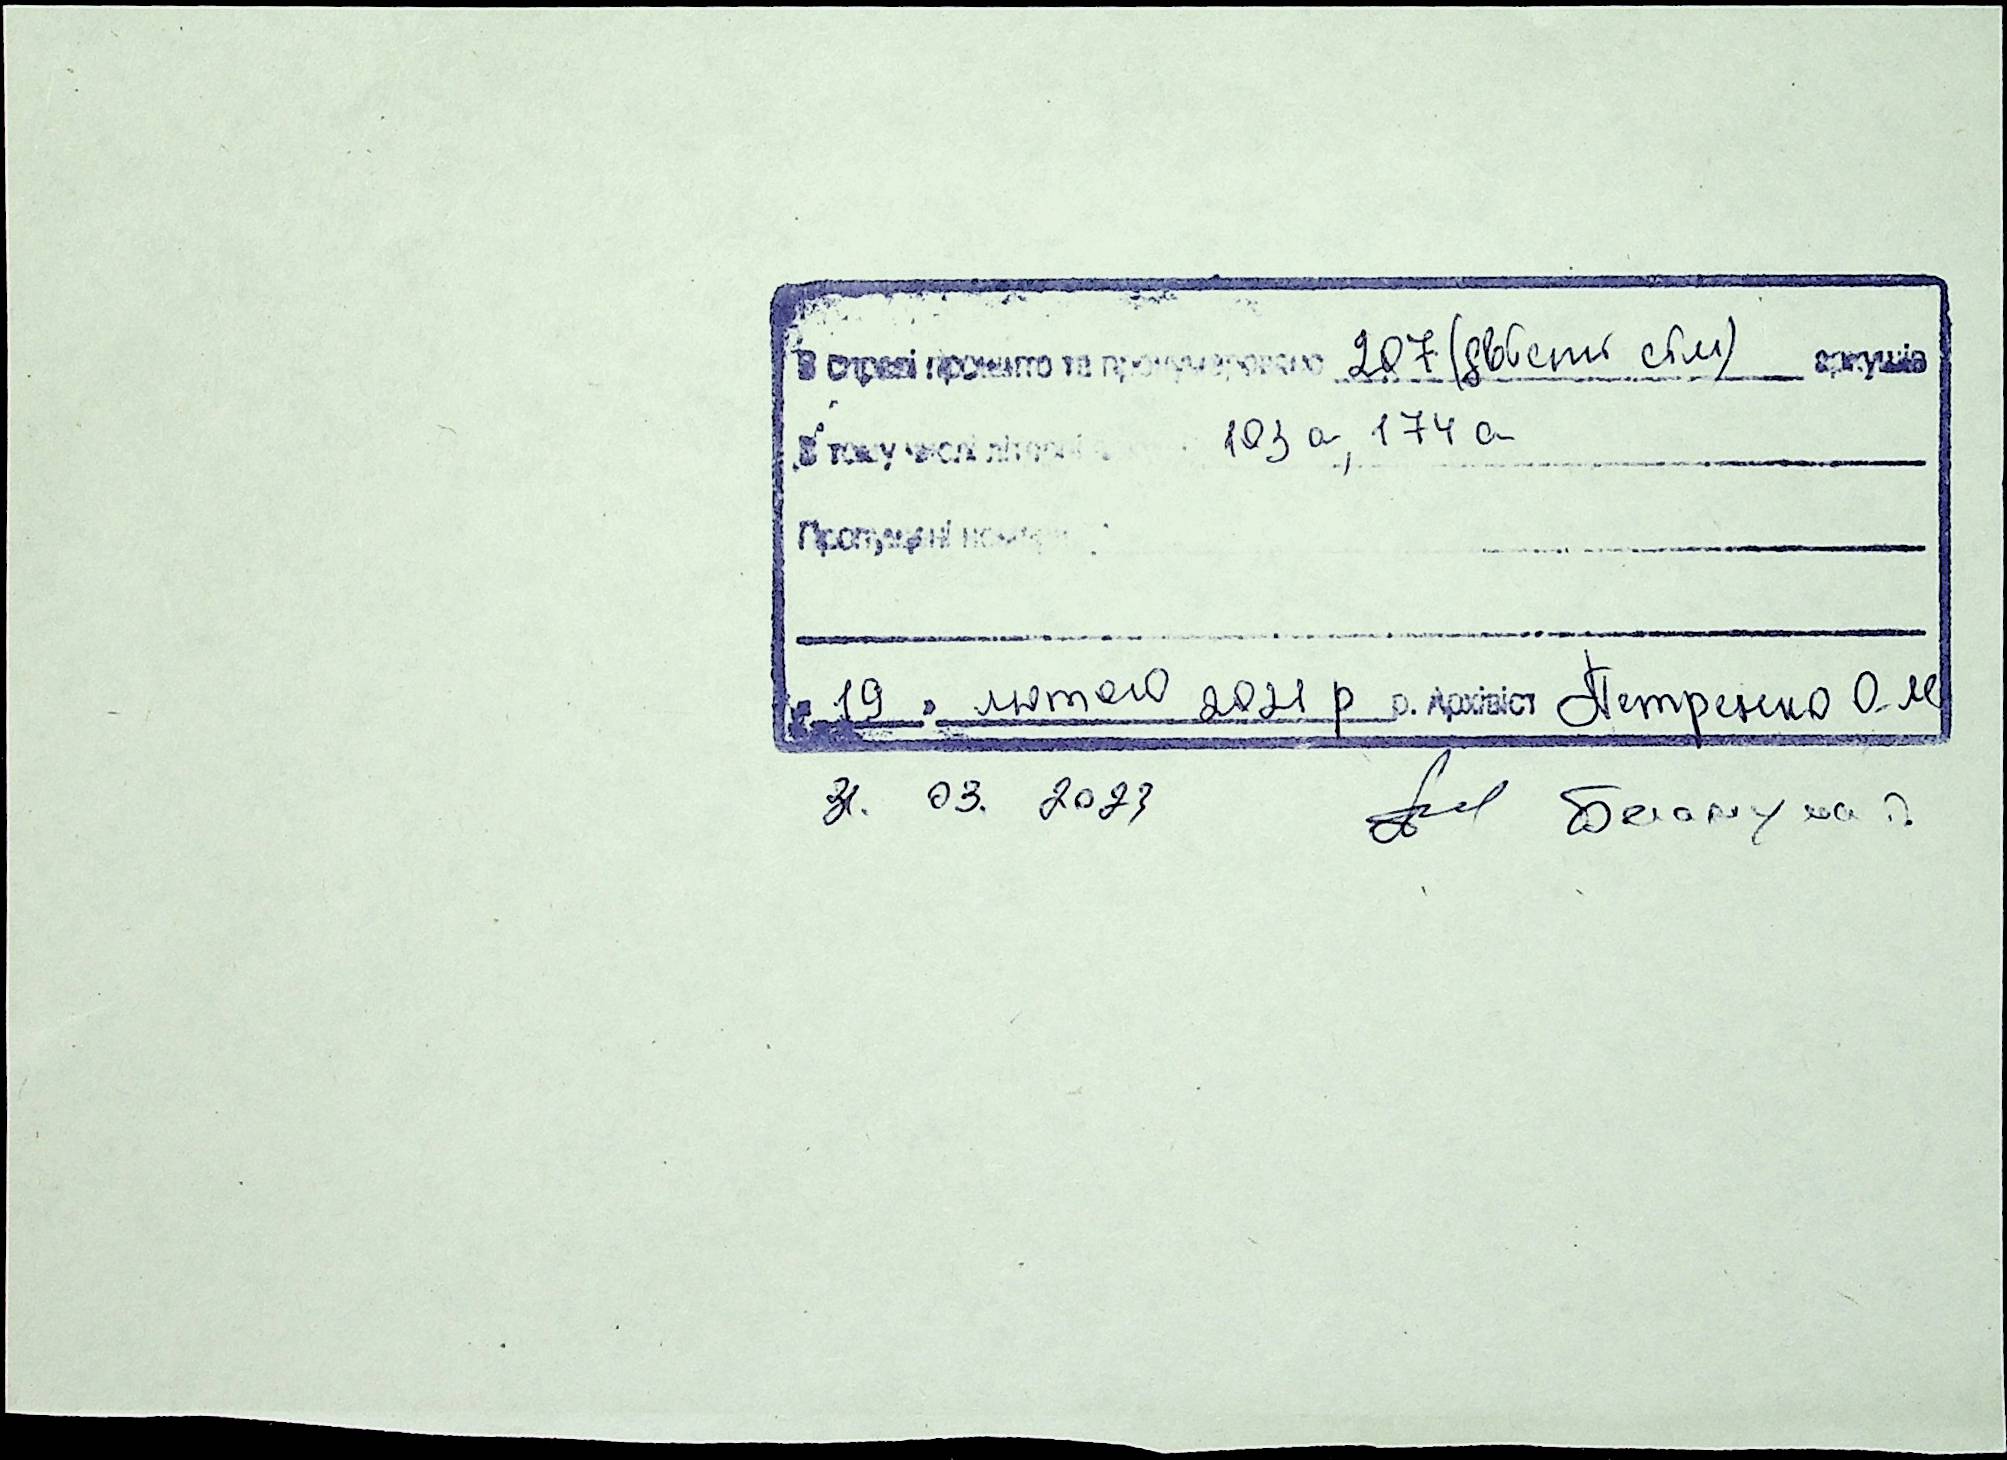 В справі прошито та пронумеровано 207 (двісті сім) аркушів
В тому числі літерні 103 а, 174 а
Пропущені номери
" 19 " лютого 2021 р р. Архівіст Петренко О.М
31. 03. 2023